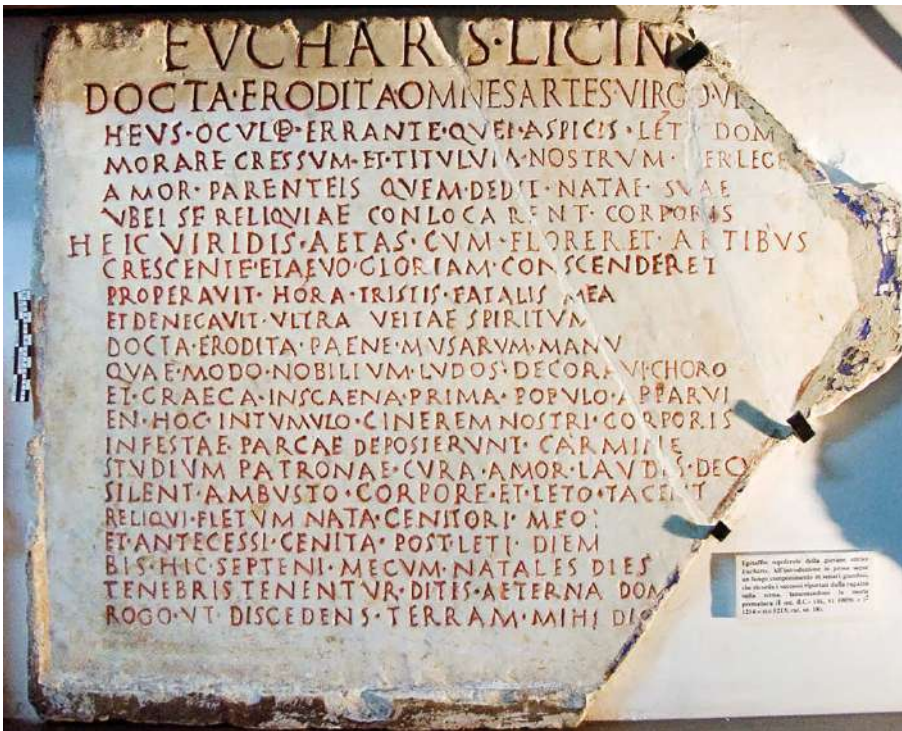 EVCHARIS·LICIN
DOCTA·ERODITA·OMNES ARTES·VIRGO
HEVS·OCVLO·ERRANTE·QVEI·ASPICIS·LETI DOM
MORARE GRESSVM·ET·TITVLVM·NOSTRVM PERLEGE
AMOR·PARENTEIS QVEM·DEDIT·NATAE·SVAE
VBEI SE RELIQVIAE CONLOCARENT·CORPORIS
HEIC VIRIDIS·AETAS·CVM·FLORERET·ARTIBVS
CRESCENTE·ET AEVO·GLORIAM·CONSCENDERET
PROPERAVIT·HORA·TRISTIS·FATALIS MEA
ET DENEGAVIT·VLTRA VEITAE SPIRITVM
DOCTA·ERODITA·PAENE·MVSARVM·MANV
QVAE·MODO·NOBILIVM·LVDOS·DECORAVI·CHORO
ET·GRAECA·IN SCAENA·PRIMA·POPVLO·APPARVI
EN·HOC·IN TVMVLO·CINEREM NOSTRI·CORPORIS
INFESTAE·PARCAE DEPOSIERVNT·CARMINE
STUDIVM PATRONAE·CVRA·AMOR·LAVDES·DECV
SILENT·AMBVSTO·CORPORE·ET·LETO·TACENT
RELIQVI·FLETVM NATA·GENITORI·MEO
ET·ANTECESSI·GENITA·POST·LETI DIEM
BIS·HIC·SEPTENI·MECVM·NATALES DIES
TENEBRIS TENENTVR·DITIS·AETERNA DOM
ROGO·VT DISCEDENS·TERRAM·MIHI DIC